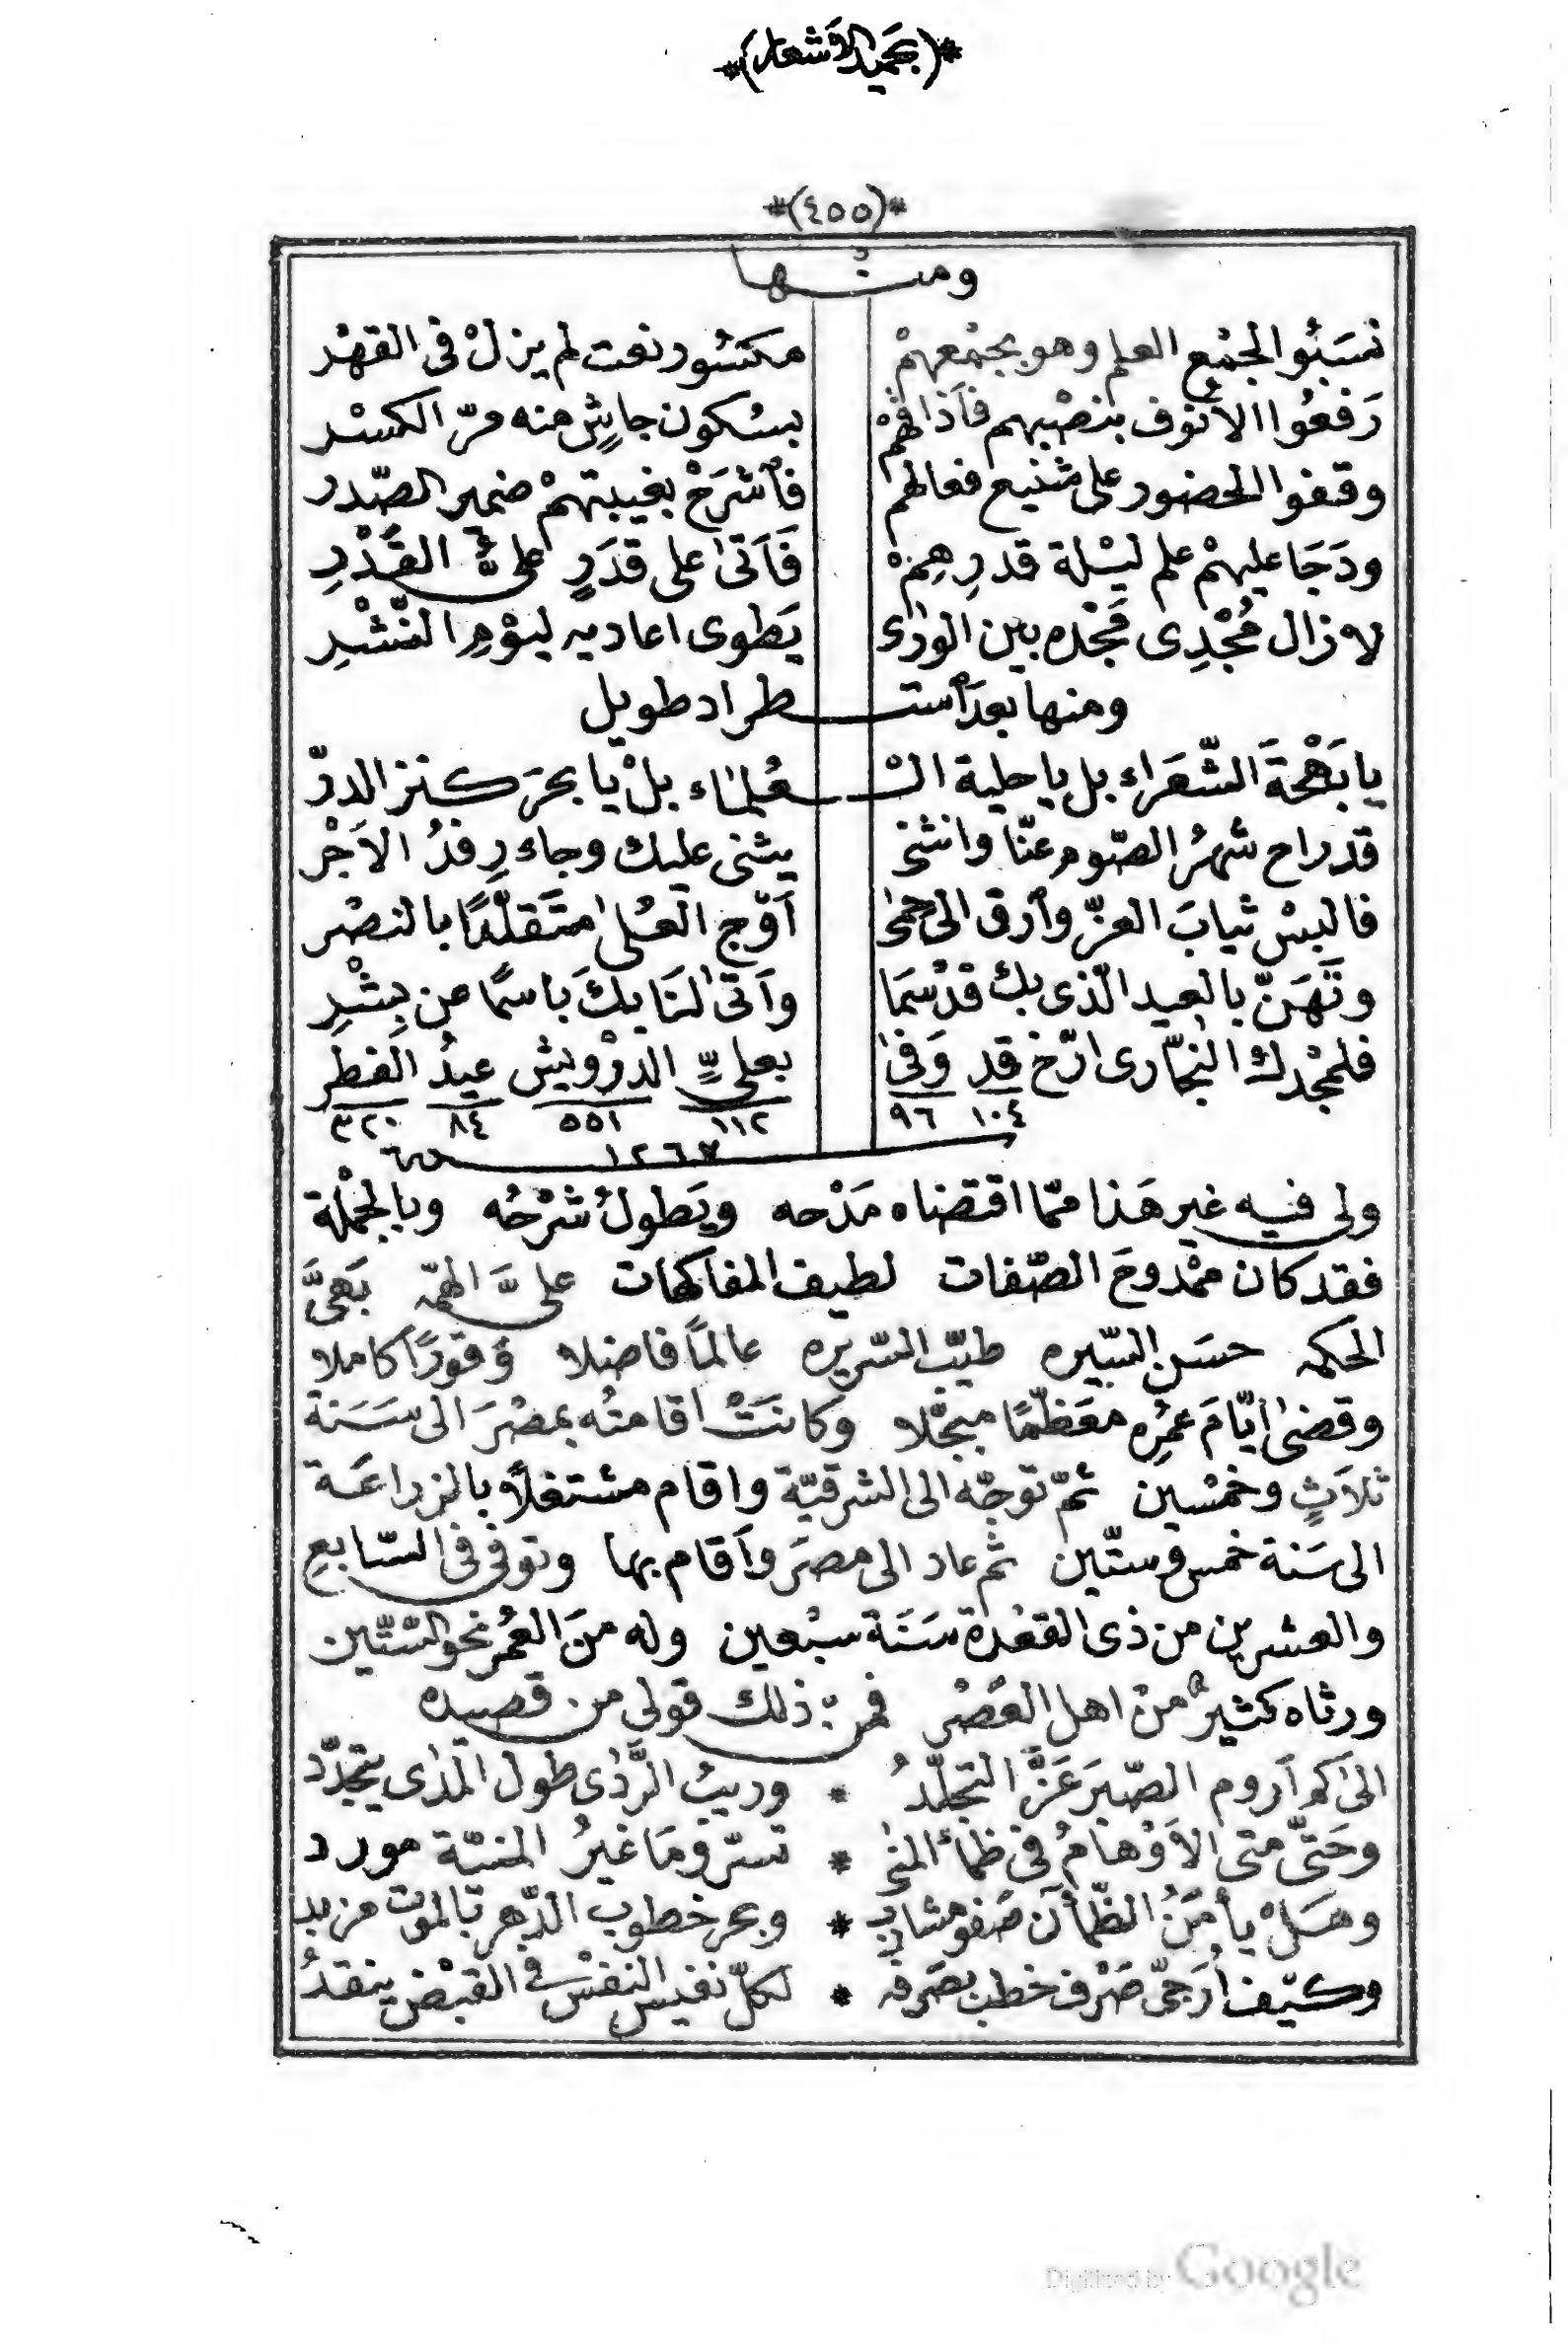 *(بحميد الأشعار)*
*(٤٥٥)*
ومنها
نسَبُوا لجمْع العلم وهو بجمْعهمْ مكسُور نعت لم يزلْ فى القهْر
رَفعُوا الأنوف بنصْبهم فأذاقهمْ بسُكون جاشٍ منه مرّ الكسْر
وقفوا الحضور على شنيع فعالهمْ فأشرَحْ بغيبتهمْ ضمير الصّدر
ودَجَا عليهمْ علم ليْلة قدرِهِمْ فَأتىٰ على قدَرٍ علىُّ القَدْرِ
لا زال مُجْدِى مَجْده بين الورٰى يَطوى اعاديه ليوْمِ النّشْرِ
ومنها بعد أستطراد طويل
يا بَهْجَةَ الشّعَراء بل يا حلية الـْ ـعُلمٰاء بلْ يا بحرَ كنز الدرّ
قد راح شهرُ الصّوم عنّا وانثنى يثنى عليك وجاء رِفدُ الأجْر
فالبسْ ثيابَ العزّ وأرق الى حمىٰ أوْج العُلىٰ متَقلّدًا بالنصْر
وتَهَنّ بالعيد الّذى بك قدْ سَمَا وأتىٰ لنَا بكَ باسمًا من بِشْرِ
فلمجْدك النجّارى ارّخ قد وَفىٰ بعلىٍّ الدرْويش عيدُ الفطر
١٠٤ ٩٦ ١١٢ ٥٥١ ٨٤ ٣٢٠
١٢٦٧ سنة
ولى فيه غير هَذا ممّا اقتضاه مَدْحه ويَطولُ شرْحُه وبالجمْلة
فقد كان ممْدوحَ الصّفات لطيف المفاكهات علىَّ الهمّه بَهىَّ
الحكمه حسَن السّيره طيّب السّريره عالمًا فاضلا وَقورًا كاملا
وقضىٰ أيّامَ عمُرِه معَظّمًا مبجّلا وكانَتْ اقامتُه بمصْرَ الى سَنة
ثلاثٍ وخمسْين ثمّ توجّه الى الشرقيّة واقام مشتغلاً بالزراعَة
الى سَنة خمس وستّين ثم عاد الى مصرَ وأقام بها وتوفى فى السّابعِ
والعشرين من ذى القعْدة سَنَة سبْعين وله منَ العُمر نحو الستّين
ورثاه كثيرٌ منْ اهل العَصْر فمن ذلك قولى من قصيده
الىٰ كم أروم الصّبرَ عَزَّ التجلّدُ * وريبُ الرَّدٰى طول المدٰى يتجدّد
وحَتىّ متى الأوْهامُ فى ظمأ المنىٰ * تسرّ ومَا غيرُ المنيّة مورد
وهَلْ يأمَنُ الظّمأن صَفو مشارب * وبحر خطوب الدّهر بالموت مزبد
وكيْف أُرجّى صَرْف خطب بصَرفه * لكلّ نفيس النفسْ فى القبْض ينقدُ
Digitized by Google